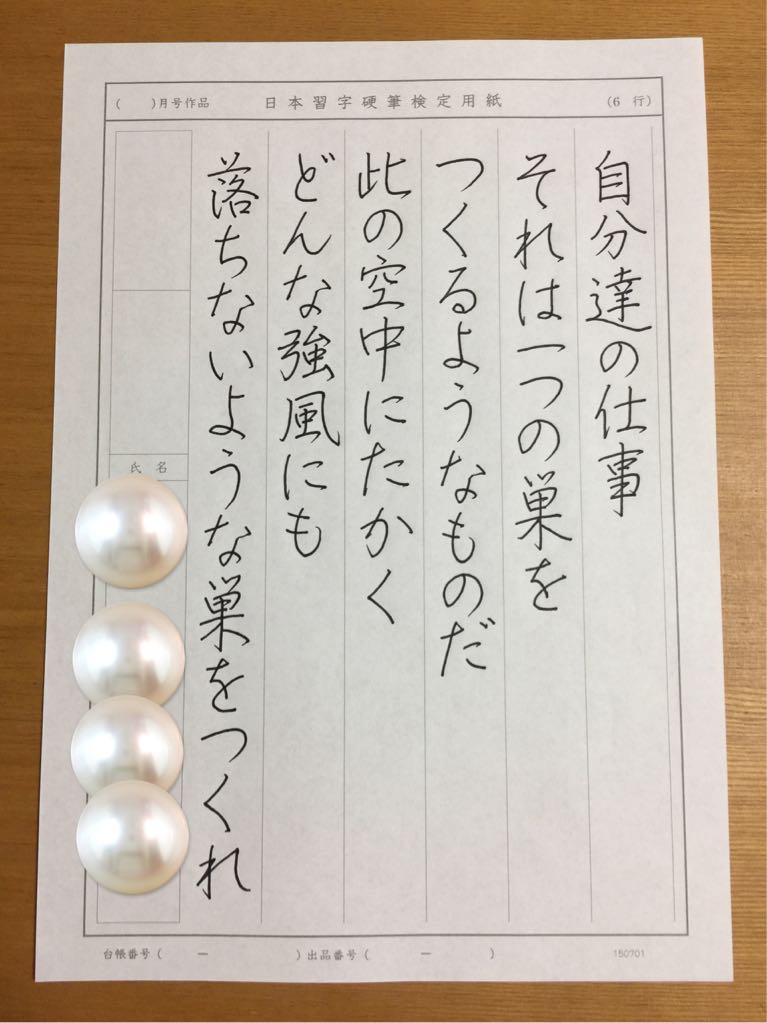 (　　)月号作品　日本習字硬筆検定用紙　(6 行)
自分達の仕事
それは一つの巣を
つくるようなものだ
此の空中にたかく
どんな強風にも
落ちないような巣をつくれ
氏名
台帳番号(　－　)出品番号(　－　)　150701